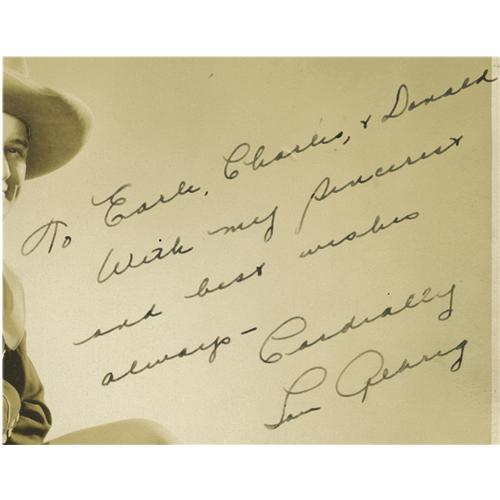 To Earle, Charles, & Donald
With my sincerest
and best wishes
always - Cordially
Lou Gehrig